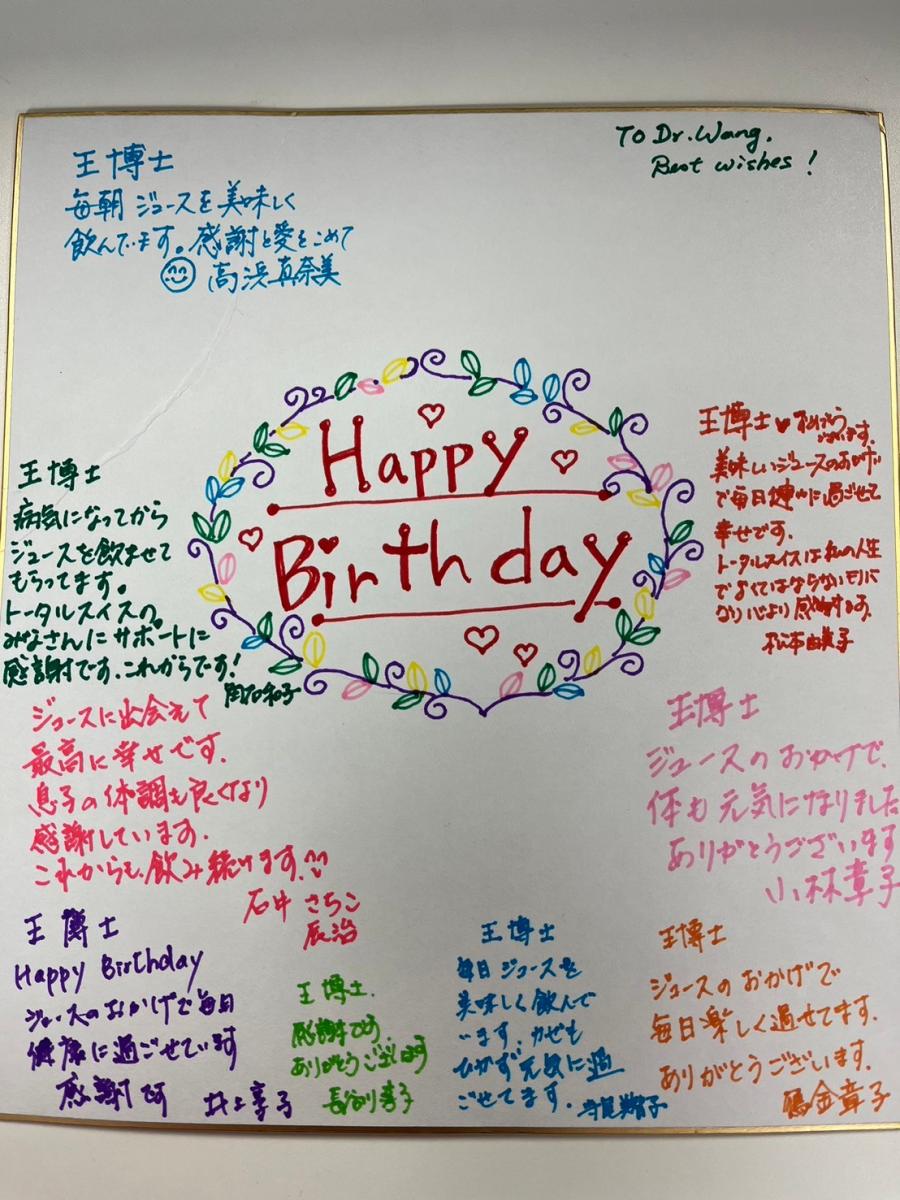 王博士
毎朝 ジュースを美味しく
飲んでいます。感謝と愛をこめて
高浜真奈美
To Dr. Wang.
Best wishes!
Happy
Birthday
王博士
病気になってから
ジュースを飲ませて
もらってます。
トータルスイスの
みなさんにサポートに
感謝です。これからです!
和子
王博士♥
美味しいジュースのおかげ
で毎日 に過ごせて
幸せです。
トータルスイスは私の人生
でなくてはならないモノで
心より感謝します。
松本由美子
ジュースに出会えて
最高に幸せです。
息子の体調も良くなり
感謝しています。
これからも飲み続けます。
石中 さちこ
辰治
王博士
ジュースのおかげで、
体も元気になりました
ありがとうございます
小林章子
王博士
Happy Birthday
ジュースのおかげで毎日
健康に過ごせています
感謝です 井上享子
王博士.
感謝です
ありがとうございます
長谷川孝子
王博士
毎日ジュースを
美味しく飲んで
います。カゼも
ひかず元気に過
ごせてます。
王博士
ジュースのおかげで
毎日楽しく過せてます.
ありがとうございます.
金章子